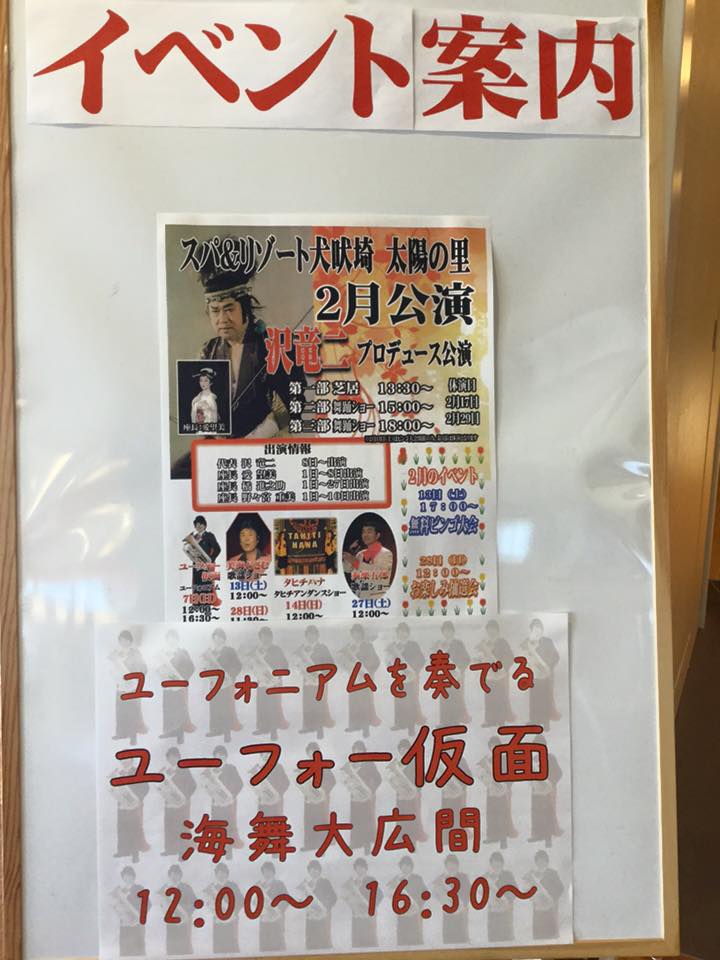 イベント案内
スパ&リゾート犬吠埼 太陽の里
2月公演
沢竜二 プロデュース公演
座長:愛望美
第一部 芝居 13:30~
第二部 舞踊ショー 15:00~
第三部 舞踊ショー 18:00~
休演日
2月17日
2月29日
出演情報
代表 沢 竜二 8日~出演
座長 愛 望美 1日~8日出演
座長 橘 進之助 1日~27日出演
座長 野々宮 重美 1日~10日出演
2月のイベント
13日(土)
17:00~
無料ビンゴ大会
28日(日)
12:00~
お楽しみ抽選会
ユーフォー
仮面
ユーフォニアム
7日(日)
12:00~
16:30~
歌謡ショー
13日(土)
12:00~
28日(日)
TAHITI
HANA
タヒチハナ
タヒチアンダンスショー
14日(日)
12:00~
歌謡ショー
27日(土)
12:00~
ユーフォニアムを奏でる
ユーフォー仮面
海舞大広間
12:00~ 16:30~